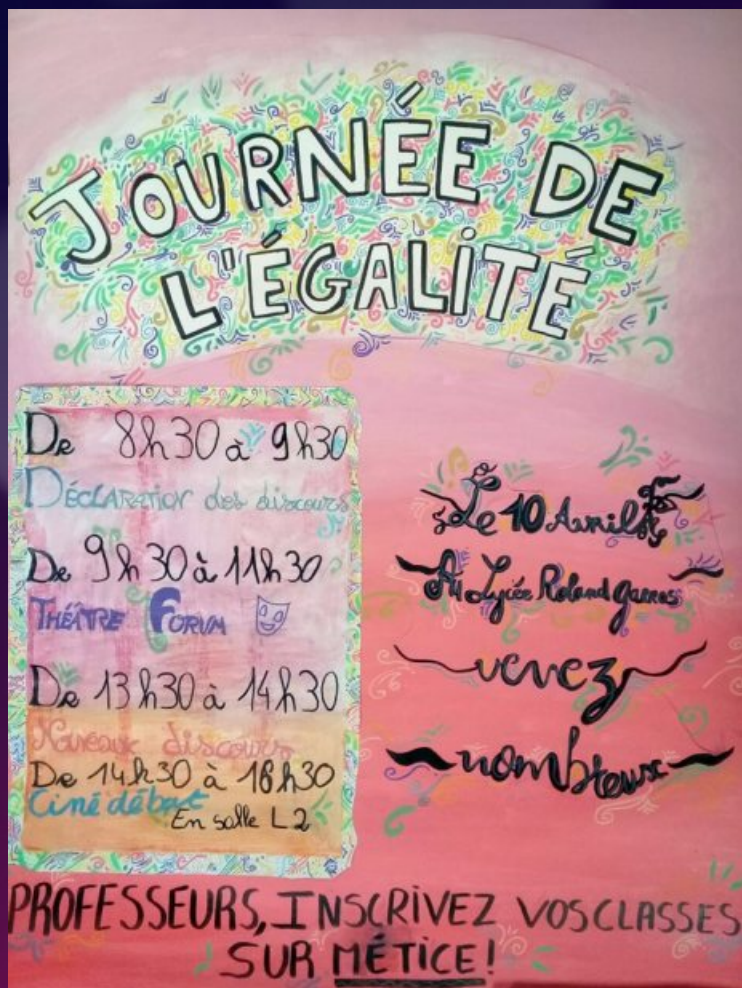 JOURNÉE DE
L'ÉGALITÉ
De 8h30 à 9h30
DÉCLARATION des discours
De 9h30 à 11h30
THÉÂTRE FORUM
De 13h30 à 14h30
Nouveaux discours
De 14h30 à 16h30
Ciné débat
En salle L2
Le 10 Avril
Au Lycée Roland Garros
venez
nombreux
PROFESSEURS, INSCRIVEZ VOS CLASSES
SUR MÉTICE!